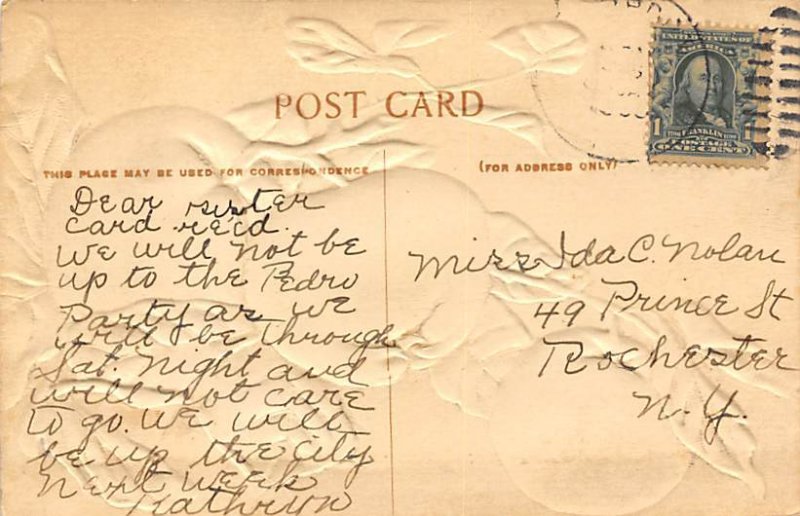 POST CARD
THIS PLACE MAY BE USED FOR CORRESPONDENCE
(FOR ADDRESS ONLY)
UNITED STATES OF
AMERICA
1 FRANKLIN 1
POSTAGE
ONE CENT
Dear sister
card rec'd.
We will not be
up to the Pedro
Party as we
will be through
Sat. Night and
will not care
to go. We will
be up the city
next week
Kathryn
Miss Ida C. Nolan
49 Prince St
Rochester
N.Y.